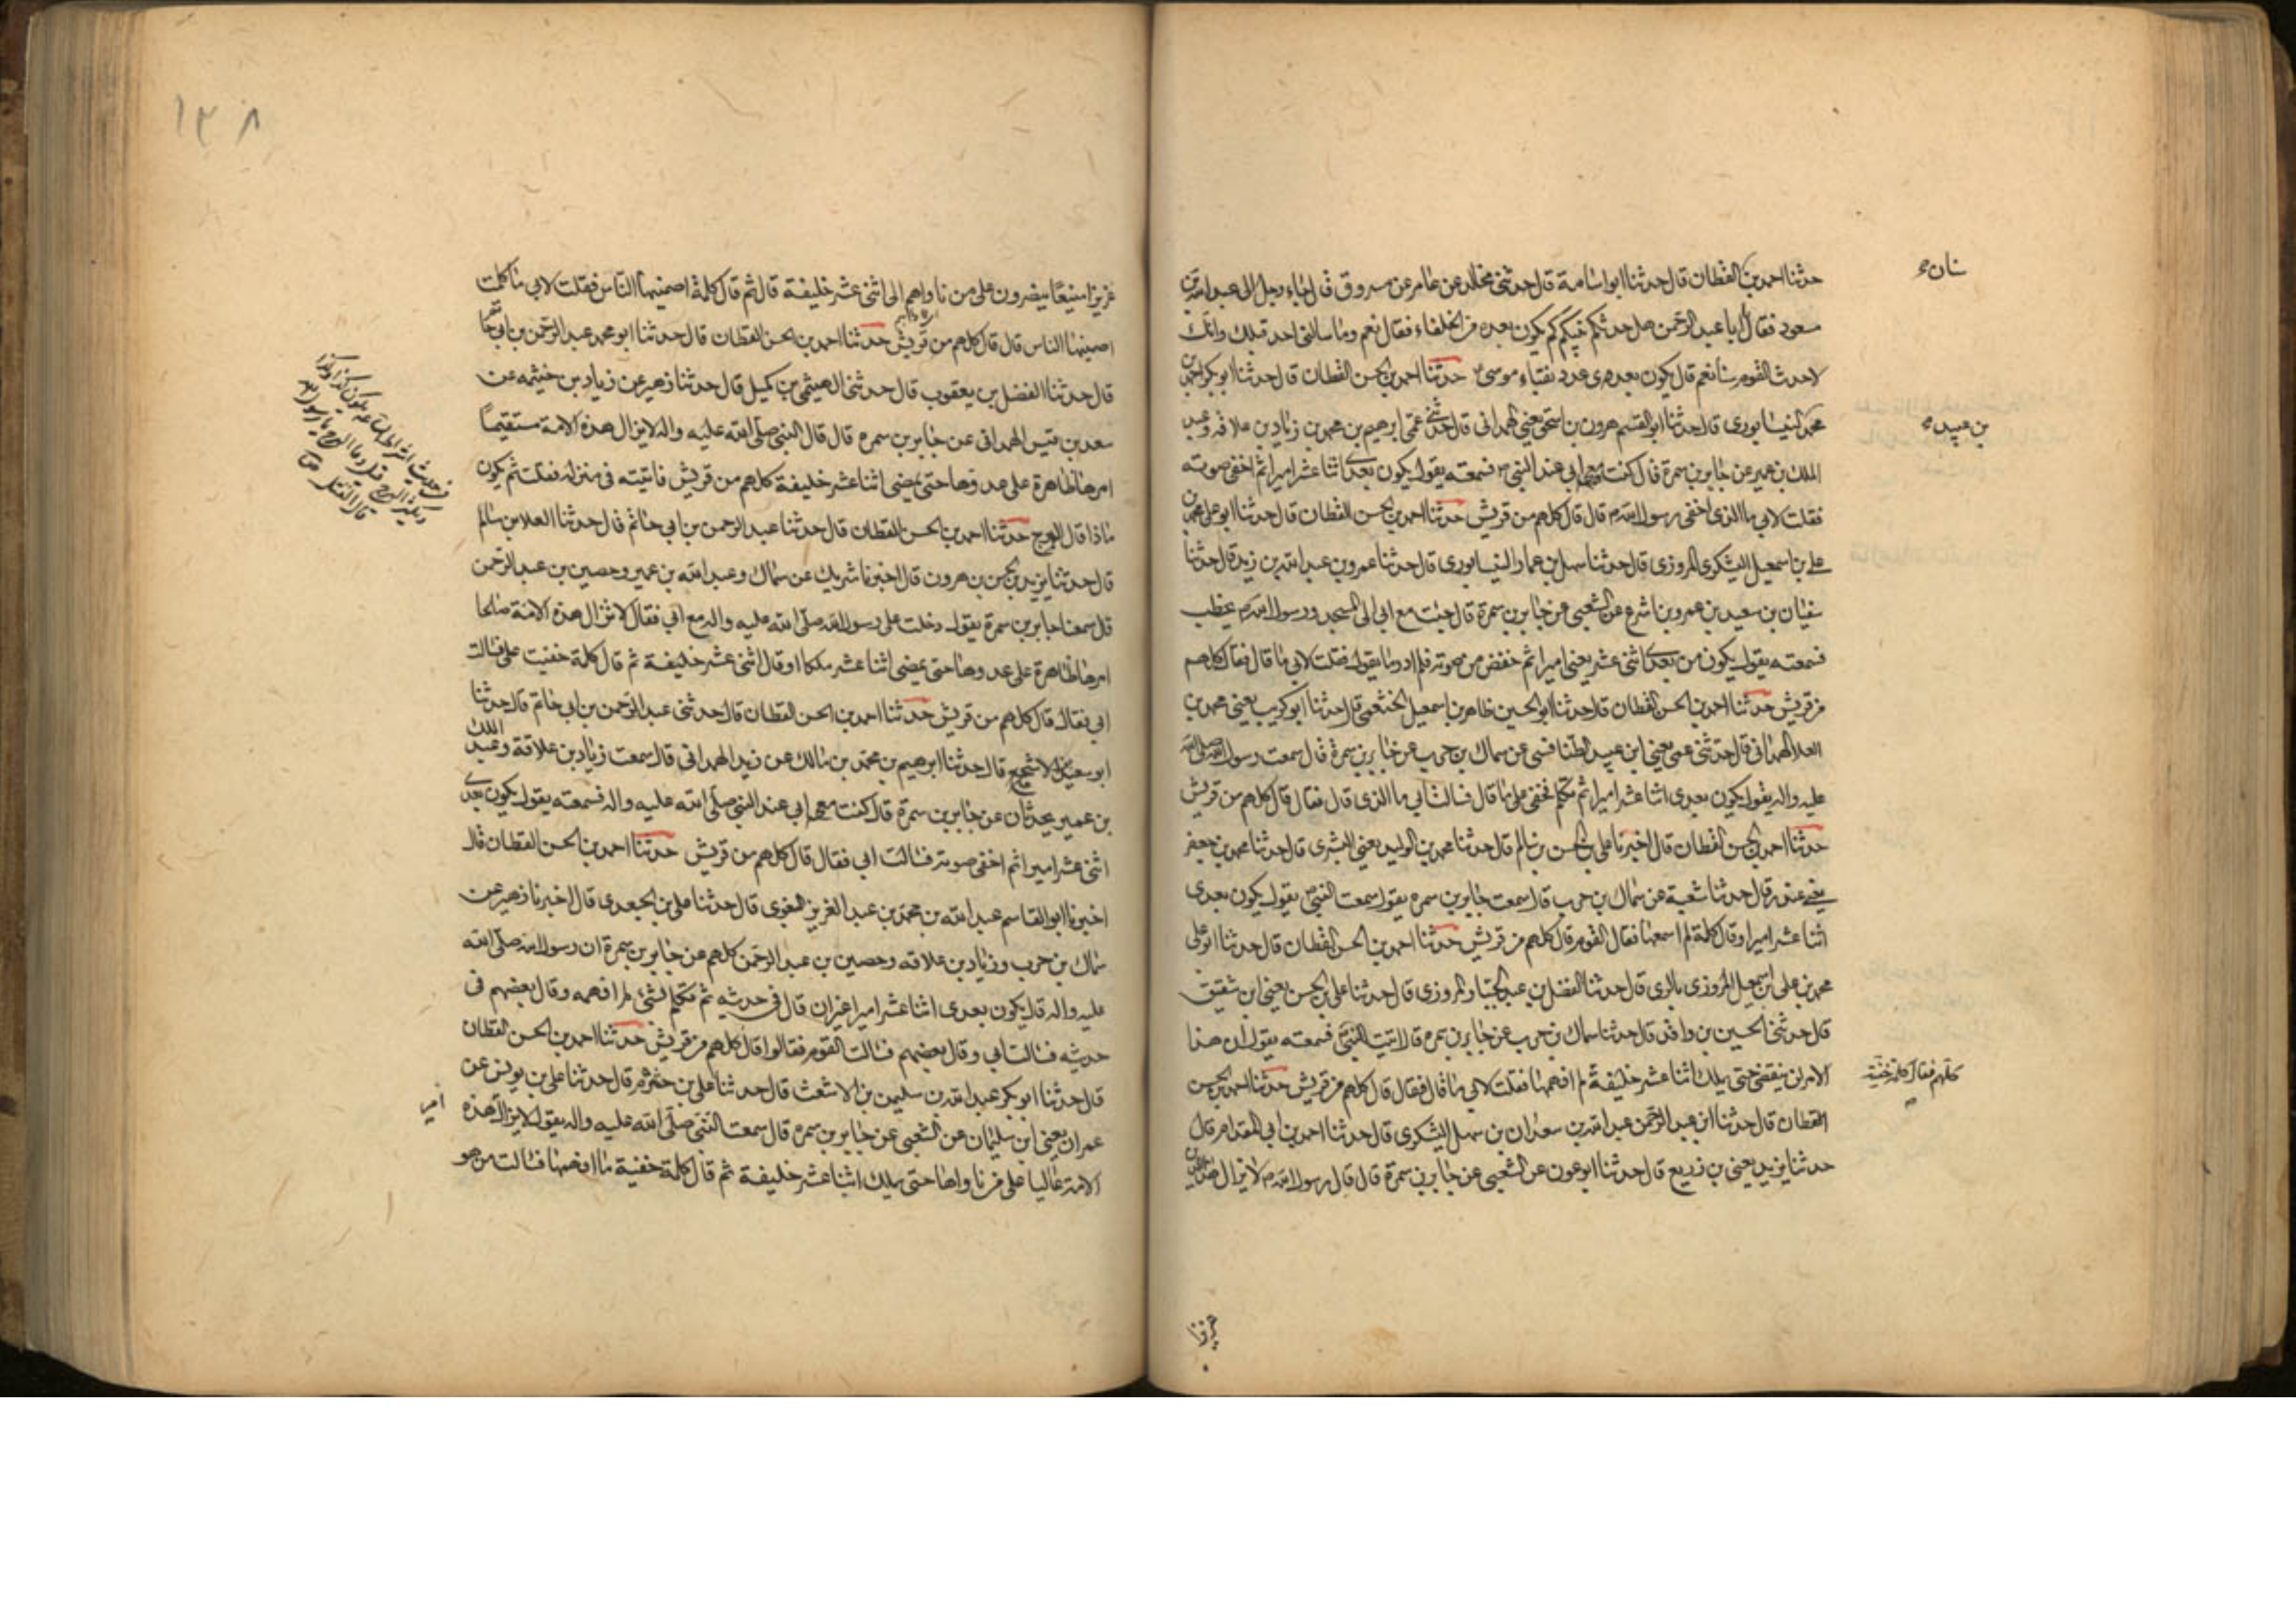 حدثنا احمد بن القطان قال حدثنا ابو اسامة قال حدثنى مخالد عن عامر عن مسروق قال جاء رجل الى عبد الله بن
سنان
مسعود فقال يا ابا عبد الرحمن هل حدثكم نبيكم كم يكون بعده من الخلفاء فقال نعم وما سالنى احد قبلك وانك
لاحدث القوم سنا نعم قال يكون بعدى عدد نقباء موسى حدثنا احمد بن الحسن القطان قال حدثنا ابو بكر احمد بن
محمد النيسابورى قال حدثنا ابو القسم هرون بن اسحق يعنى الهمدانى قال حدثنى عمى ابرهيم بن محمد بن زياد بن علاقه وعبد
بن عبيد
الملك بن عمير عن جابر بن سمرة قال كنت مع ابى عند النبى فسمعته يقول يكون بعدى اثنا عشر اميرا ثم اخفى صوته
فقلت لابى ما الذى اخفى رسول الله قال قال كلهم من قريش حدثنا احمد بن الحسن القطان قال حدثنا ابو على محمد بن
على بن اسمعيل اليشكرى المروزى قال حدثنا سهل بن عمار النيسابورى قال حدثنا عمرو بن عبد الله بن زيد قال حدثنا
سفيان بن سعيد بن عمرو بن اشرع عن الشعبى عن جابر بن سمرة قال جئت مع ابى الى المسجد ورسول الله يخطب
فسمعته يقول يكون من بعدى اثنى عشر يعنى اميرا ثم خفض من صوته فلم ادر ما يقول فقلت لابى ما قال فقال كلهم
من قريش حدثنا احمد بن الحسن القطان قال حدثنا ابو الحسين طاهر بن اسمعيل الخثعمى قال حدثنا ابو كريب يعنى محمد بن
العلا الهمدانى قال حدثنى عمى يعنى ابن عبيد الطنافسى عن سماك بن حرب عن جابر بن سمرة قال سمعت رسول الله صلى الله
عليه واله يقول يكون بعدى اثنا عشر اميرا ثم تكلم فخفى على ما قال فسالت ابى ما الذى قال فقال قال كلهم من قريش
حدثنا احمد بن الحسن القطان قال اخبرنا على بن الحسن بن سالم قال حدثنا محمد بن الوليد يعنى البشرى قال حدثنا محمد بن جعفر
يعنى غندر قال حدثنا شعبة عن سماك بن حرب قال سمعت جابر بن سمره يقول سمعت النبى يقول يكون بعدى
اثنا عشر اميرا وقال كلمة لم اسمعها فقال القوم قال كلهم من قريش حدثنا احمد بن الحسن القطان قال حدثنا ابو على
محمد بن على بن اسمعيل المروزى بالرى قال حدثنا الفضل بن عبد الجبار المروزى قال حدثنا على بن الحسن يعنى ابن شقيق
قال حدثنى الحسين بن واقد قال حدثنا سماك بن حرب عن جابر بن سمره قال اتيت النبى فسمعته يقول ان هذا
الامر لن ينقضى حتى يملك اثنا عشر خليفة لم افهمها فقلت لابى ما قال فقال قال كلهم من قريش حدثنا احمد بن الحسن
كلهم فقال كلمة خفية
القطان قال حدثنا ابن عبد الرحمن عبد الله بن سعدان بن سهل اليشكرى قال حدثنا احمد بن ابى المقدام قال
حدثنا يزيد يعنى بن زريع قال حدثنا ابو عون عن الشعبى عن جابر بن سمرة قال قال رسول الله لا يزال هذا الدين
عزيزا
١٣٨
عزيزا منيعا ينصرون على من ناواهم الى اثنى عشر خليفة قال ثم قال كلمة اصمنيها الناس فقلت لابى ما كلمت
اصمنيها الناس قال قال كلهم من قريش حدثنا احمد بن الحسن القطان قال حدثنا ابو محمد عبد الرحمن بن ابى حاتم
قال حدثنا الفضل بن يعقوب قال حدثنى الهيثمى بن كميل قال حدثنا زهير عن زياد بن خيثمه عن
سعد بن قيس الهمدانى عن جابر بن سمره قال قال النبى صلى الله عليه واله لا يزال هذه الامة مستقيما
امرها ظاهرة على عدوها حتى يمضى اثنا عشر خليفة كلهم من قريش فاتيته فى منزله فقلت ثم يكون
ماذا قال الهرج حدثنا احمد بن الحسن القطان قال حدثنا عبد الرحمن بن ابى حاتم قال حدثنا العلا بن سالم
قال حدثنا يزيد بن الحسن بن هرون قال اخبرنا شريك عن سماك وعبد الله بن عمير وحصين بن عبد الرحمن
قال سمعنا جابر بن سمرة يقول دخلت على رسول الله صلى الله عليه واله مع ابى فقال لا تزال هذه الامة صالحا
امرها ظاهرة على عدوها حتى يمضى اثنا عشر ملكا او قال اثنى عشر خليفة ثم قال كلمة خفيت على فسالت
ابى فقال قال كلهم من قريش حدثنا احمد بن الحسن القطان قال حدثنى عبد الرحمن بن ابى حاتم قال حدثنا
ابو سعيد الاشج قال حدثنا ابرهيم بن محمد بن مالك عن زيد الهمدانى قال سمعت زياد بن علاقة وعبد الملك
بن عمير يحدثان عن جابر بن سمرة قال كنت مع ابى عند النبى صلى الله عليه واله فسمعته يقول يكون بعدى
اثنى عشر اميرا ثم اخفى صوته فسالت ابى فقال قال كلهم من قريش حدثنا احمد بن الحسن القطان قال
اخبرنا ابو القاسم عبد الله بن محمد بن عبد العزيز البغوى قال حدثنا على بن الجعد قال اخبرنا زهير عن
سماك بن حرب وزياد بن علاقه وحصين بن عبد الرحمن كلهم عن جابر بن سمرة ان رسول الله صلى الله
عليه واله قال يكون بعدى اثنا عشر اميرا غير ان قال فى حديثه ثم تكلم بشئ لم افهمه وقال بعضهم فى
حديثه فسالت ابى وقال بعضهم فسالت القوم فقالوا قال كلهم من قريش حدثنا احمد بن الحسن القطان
قال حدثنا ابو بكر عبد الله بن سليمن بن الاشعث قال حدثنا على بن خشرم قال حدثنا على بن يونس عن
عمران يعنى ابن سليمان عن الشعبى عن جابر بن سمره قال سمعت النبى صلى الله عليه واله يقول لا يزال هذه
امر
الامة عاليا على من ناواها حتى يملك اثنا عشر خليفة ثم قال كلمة خفية ما افهمها فسالت من هو